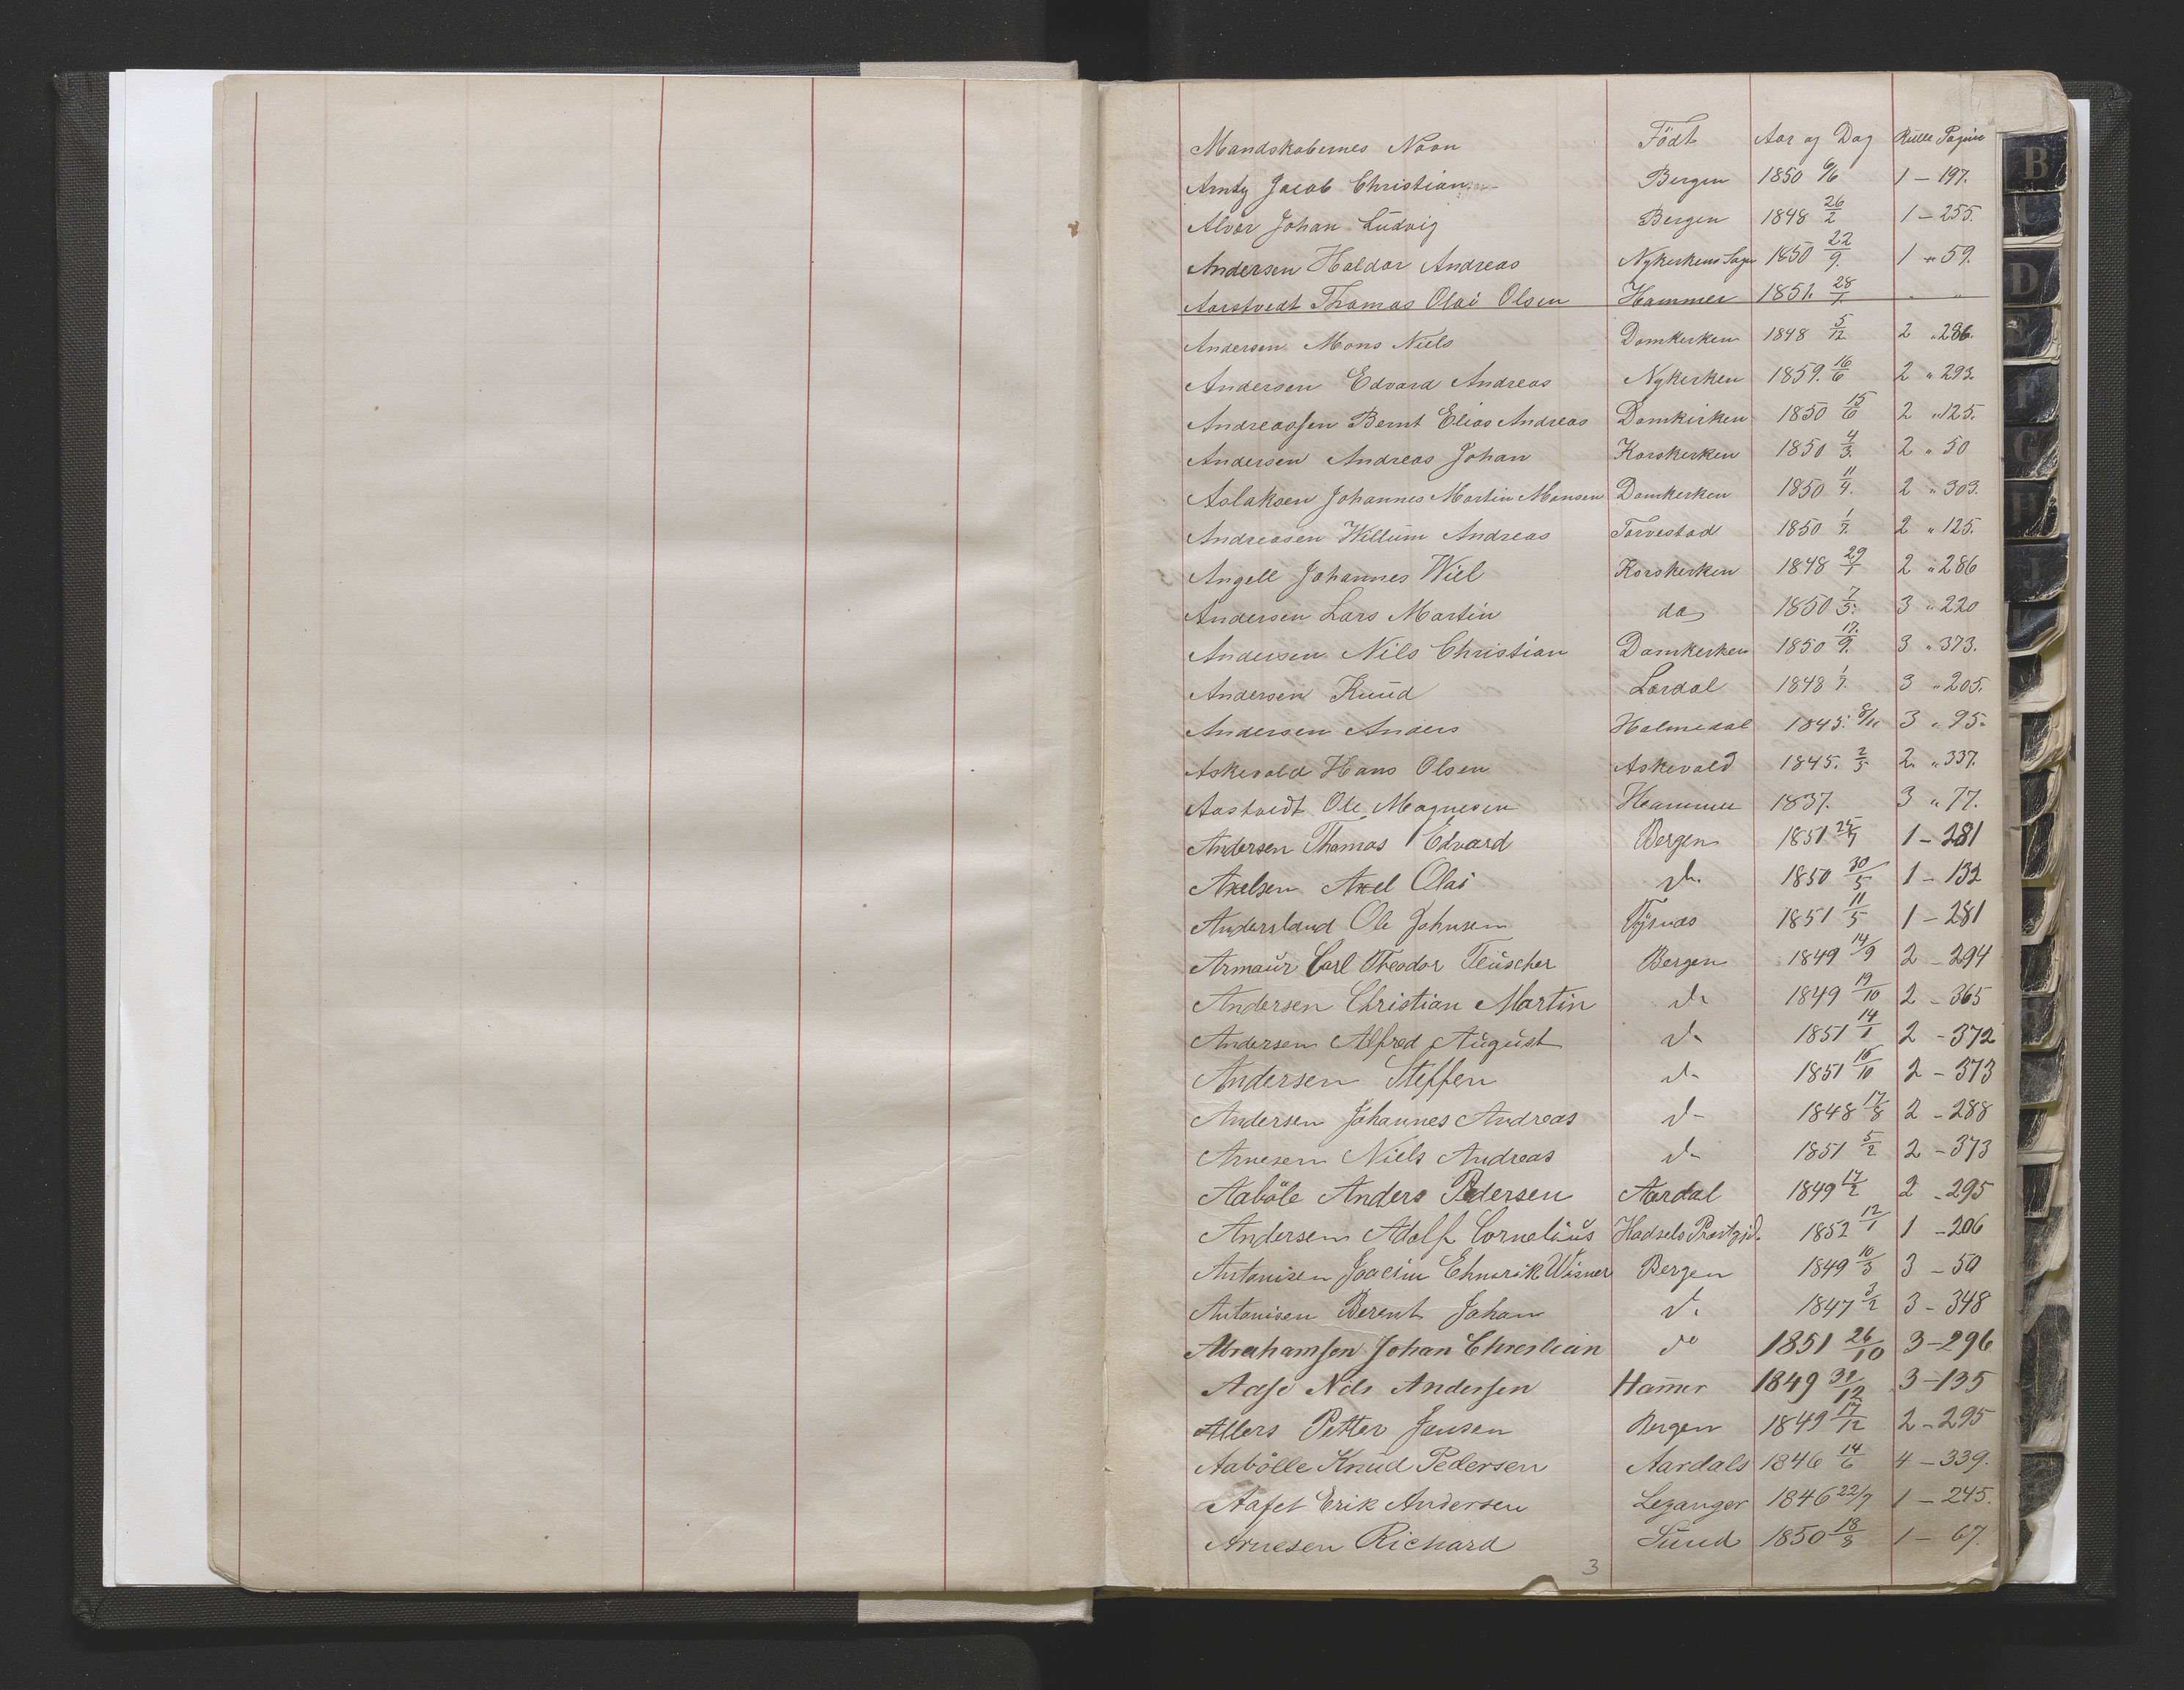 Mandskabernes Navn Födt Aar og Dag Rulle Pagina
Arntz Jacob Christian Bergen 1850 6/6 1 - 197.
Alver Johan Ludvig Bergen 1848 26/2 1 - 255.
Andersen Haldor Andreas Nykerkens Sogn 1850 22/9. 1 " 59.
Aarstvedt Thomas Olai Olsen Hammer 1851. 28/7. " "
Andersen Mons Niels Domkerken 1848 5/12 2 " 286.
Andersen Edvard Andreas Nykerken 1859. 16/6 2 " 293.
Andreassen Bernt Elias Andreas Domkirken 1850 15/6 2 " 125.
Andersen Andreas Johan Korskerken 1850 4/3. 2 " 50
Aslaksen Johannes Martin Monsen Domkerken 1850 11/4. 2 " 303.
Andreasen Willum Andreas Torvestad 1850 1/7. 2 " 125.
Angell Johannes Wiel Korskerken 1848 29/1 2 " 286
Andersen Lars Martin do 1850 7/5. 3 " 220
Andersen Nils Christian Domkerken 1850 17./9. 3 " 373.
Andersen Knud Lærdal 1848 1/7. 3 " 205.
Andersen Anders Holmedal 1845. 8/11 3 " 95.
Askevold Hans Olsen Askevold 1845. 2/5 2. " 337.
Aastvedt Ole Magnesen Hammer 1837. 3 " 77.
Andersen Thomas Edvard Bergen 1851 25/7 1 - 281
Axelsen Axel Olai do 1850 30/5 1 - 132
Andersland Ole Johnsen Tysnæs 1851 11/5 1 - 281
Armaur Carl Theodor Teuscher Bergen 1849 14/9 2 - 294
Andersen Christian Martin do 1849 19/10 2 - 365
Andersen Alfred August do 1851 14/1 2 - 372
Andersen Steffen do 1851 15/10 2 - 373
Andersen Johannes Andreas do 1848 17/8 2 - 288
Arnesen Niels Andreas do 1851 5/2 2 - 373
Aaböle Anders Pedersen Aardal 1849 17/2 2 - 295
Andersen Adolf Cornelius Hadsels Prestgjd. 1852 12/1 1 - 206
Antonisen Joacim Wisner Bergen 1849 10/3 3 - 50
Antonisen Berent Johan do 1847 3/2 3 - 348
Abrahamsen Johan Christian do 1851 26/10 3 - 296
Aase Nils Andersen Hamer 1849 31/12 3 - 135
Allers Petter Jansen Bergen 1849 17/12 2 - 295
Aabölle Knud Pedersen Aardals 1846 14/6 4 - 339.
Aafet Erik Andersen Leganger 1846 22/7 1 - 245.
Arnesen Richard Sund 1850 18/8 1 - 67.
3
B
D
E
F
G
H
I
K